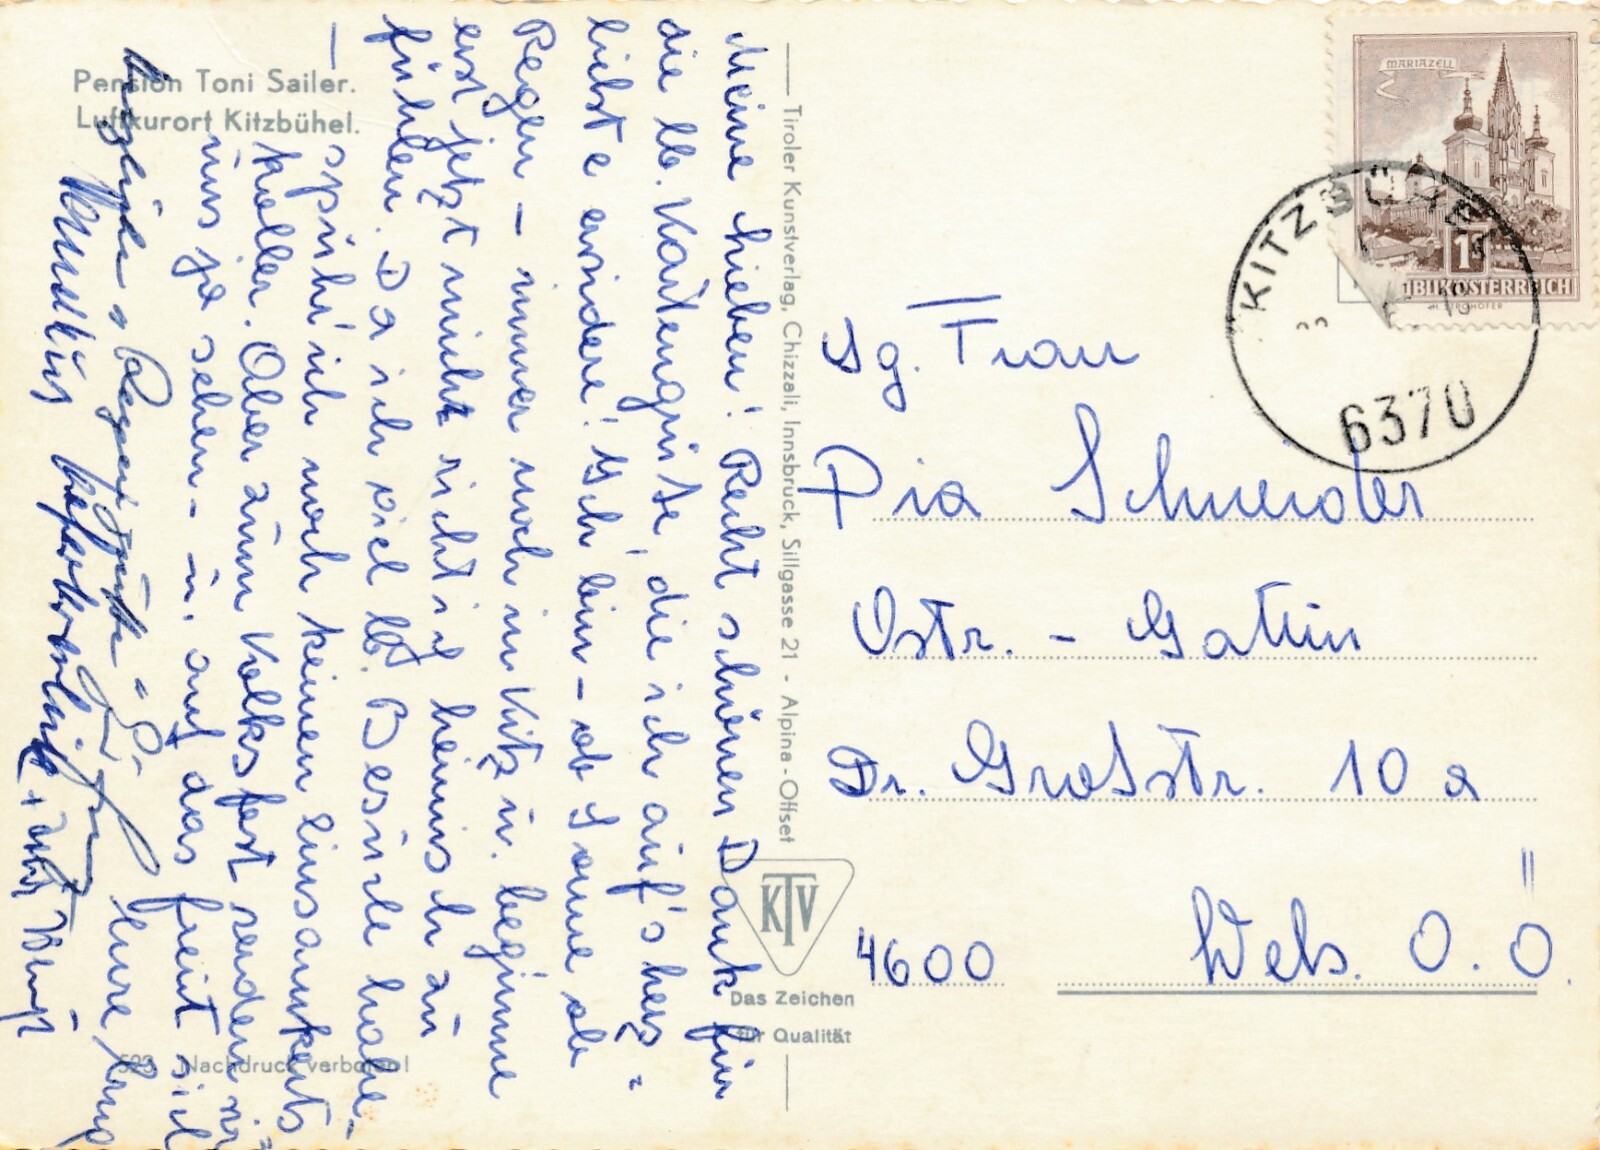 Pension Toni Sailer.
Luftkurort Kitzbühel.
Meine Lieben! Recht schönen Dank für
die lb. Kartengrüße, die ich auf's herz=
lichste erwidere! Ich bin - ob Sonne ob
Regen - immer noch in Kitz u. beginne
erst jetzt mich richtig heimisch zu
fühlen. Da ich viel lb. Besuche habe,
spühr' ich noch keinen Einsamkeits
koller. Aber zum Volksfest werden wir
uns ja sehen - u. auf das freut sich
Eure
Herzliche
Tiroler Kunstverlag, Chizzali, Innsbruck, Sillgasse 21 - Alpina-Offset
KTV
Das Zeichen
für Qualität
523 Nachdruck verboten!
MARIAZELL
1S
REPUBLIK ÖSTERREICH
KITZBÜHEL
6370
Sg. Frau
Pia Schneider
Ostr. - Gattin
Dr. Großstr. 10 a
4600 Wels. O.Ö.